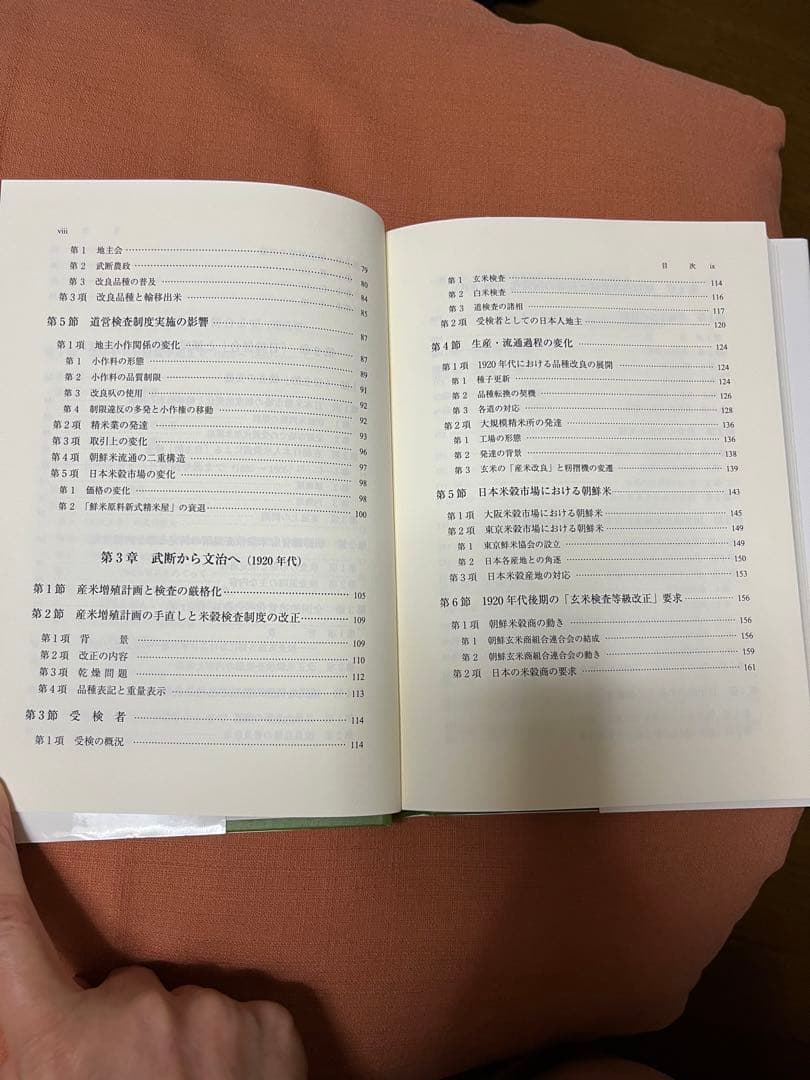 viii
第1 地主会 79
第2 武断農政 80
第3 改良品種の普及 84
第3項 改良品種と輸移出米 85
第5節 道営検査制度実施の影響 87
第1項 地主小作関係の変化 87
第1 小作料の形態 89
第2 小作料の品質制限 91
第3 改良叺の使用 92
第4 制限違反の多発と小作権の移動 92
第2項 精米業の発達 94
第3項 取引上の変化 97
第4項 朝鮮米流通の二重構造 98
第5項 日本米穀市場の変化 98
第1 価格の変化 98
第2 「鮮米原料新式精米屋」の衰退 100
第3章 武断から文治へ（1920年代）
第1節 産米増殖計画と検査の厳格化 105
第2節 産米増殖計画の手直しと米穀検査制度の改正 109
第1項 背景 109
第2項 改正の内容 110
第3項 乾燥問題 112
第4項 品種表記と重量表示 113
第3節 受検者 114
第1項 受検の概況 114
目次 ix
第1 玄米検査 114
第2 白米検査 116
第3 道検査の諸相 117
第2項 受検者としての日本人地主 120
第4節 生産・流通過程の変化 124
第1項 1920年代における品種改良の展開 124
第1 種子更新 124
第2 品種転換の契機 126
第3 各道の対応 128
第2項 大規模精米所の発達 136
第1 工場の形態 136
第2 発達の背景 138
第3 玄米の「産米改良」と籾摺機の変遷 139
第5節 日本米穀市場における朝鮮米 143
第1項 大阪米穀市場における朝鮮米 145
第2項 東京米穀市場における朝鮮米 149
第1 東京鮮米協会の設立 149
第2 日本各産地との角逐 150
第3項 日本米穀産地の対応 153
第6節 1920年代後期の「玄米検査等級改正」要求 156
第1項 朝鮮米穀商の動き 156
第1 朝鮮玄米商組合連合会の結成 156
第2 朝鮮玄米商組合連合会の動き 159
第2項 日本の米穀商の要求 161